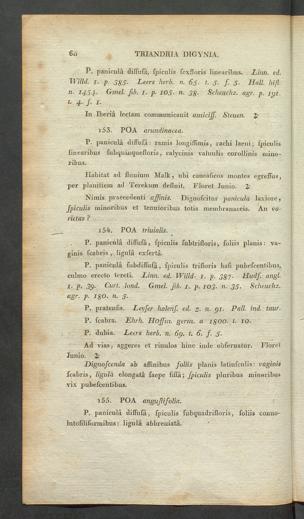 60 TRIANDRIA DIGYNIA.
P. paniculâ diffusâ, spiculis sexfloris linearibus. Linn. ed.
Willd. 1. p. 385. Leers herb. n. 65. t. 5. f. 3. Hall. hist.
n. 1454. Gmel. sib. 1. p. 105. n. 38. Scheuchz. agr. p. 191.
t. 4. f. 1.
In Iberiâ lectam communicavit amiciss. Steven. ♃
153. POA arundinacea.
P. paniculâ diffusâ: ramis longissimis, rachi laevi; spiculis
linearibus subquinquefloris, calycinis valvulis corollinis mino-
ribus.
Habitat ad flumium Malk, ubi caucasicos montes egressus,
per planitiem ad Terekum desinit. Floret Junio. ♃
Nimis praecedenti affinis. Dignoscitur panicula laxiore,
spiculis minoribus et tenuioribus totis membranaceis. An va-
rietas?
154. POA trivialis.
P. paniculâ diffusâ, spiculis subtrifloris, foliis planis: va-
ginis scabris, ligulâ exsertâ.
P. paniculâ subdiffusâ, spiculis trifloris basi pubescentibus,
culmo erecto tereti. Linn. ed. Willd. 1. p. 387. Huds. angl.
1. p. 39. Curt. lond. Gmel. sib. 1. p. 105. n. 35. Scheuchz.
agr. p. 180. n. 5.
P. pratensis. Leyser halens. ed. 2. n. 91. Pall. ind. taur.
P. scabra. Ehrh. Hoffm. germ. a 1800. t. 10.
P. dubia. Leers herb. n. 69. t. 6. f. 5.
Ad vias, aggeres et rimulos hinc inde observatur. Floret
Junio. ♃
Dignoscenda ab affinibus foliis planis latiusculis: vaginis
scabris, ligulâ elongatâ saepe fissâ; spiculis pluribus minoribus
vix pubescentibus.
155. POA angustifolia.
P. paniculâ diffusâ, spiculis subquadrifloris, foliis convo-
lutofiliformibus: ligulâ abbreviatâ.